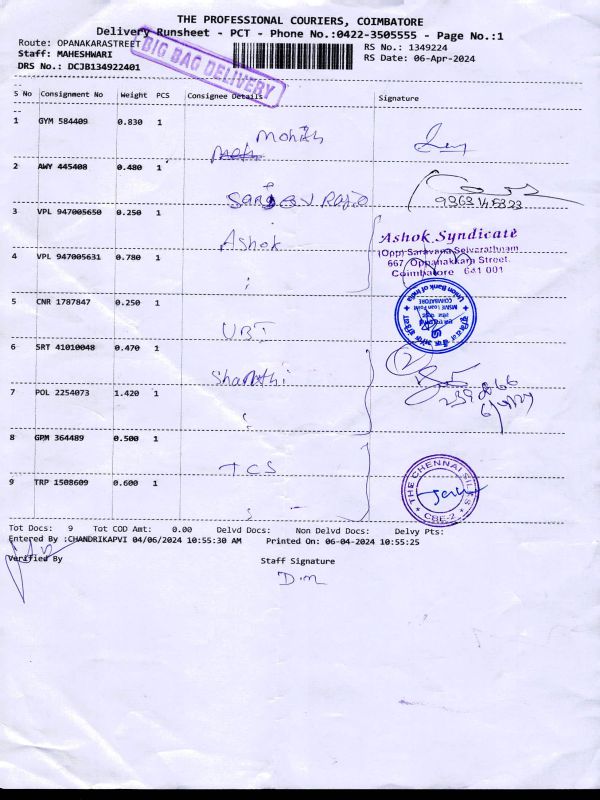 THE PROFESSIONAL COURIERS, COIMBATORE
Delivery Runsheet - PCT - Phone No.:0422-3505555 - Page No.:1
Route: OPANAKARASTREET
RS No.: 1349224
Staff: MAHESHWARI
RS Date: 06-Apr-2024
DRS No.: DCJB134922401
BIG BAG DELIVERY
S No Consignment No Weight PCS Consignee Details Signature
1 GYM 584409 0.830 1
Mohith
2 AWY 445408 0.480 1
3 VPL 947005650 0.250 1
Ashok
Ashok Syndicate
(Opp) Saravana Selvarathnam
667, Oppanakkara Street.
Coimbatore 641 001
4 VPL 947005631 0.780 1
5 CNR 1787847 0.250 1
UBI
Union Bank of India
COIMBATORE
6 SRT 41010048 0.470 1
7 POL 2254073 1.420 1
8 GPM 364489 0.500 1
TCS
THE CHENNAI SILKS
CBE-2
9 TRP 1508609 0.600 1
Tot Docs: 9 Tot COD Amt: 0.00 Delvd Docs: Non Delvd Docs: Delvy Pts:
Entered By :CHANDRIKAPVI 04/06/2024 10:55:30 AM Printed On: 06-04-2024 10:55:25
Verified By
Staff Signature
D.M